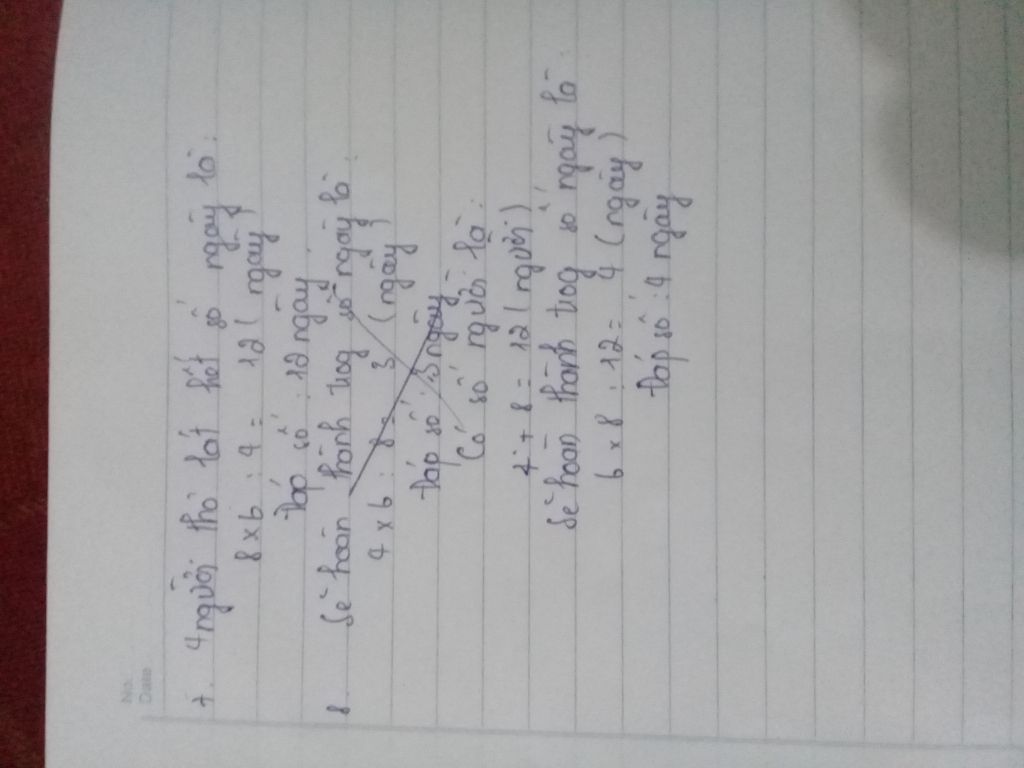 No.
Date
7. 4 người thợ lát hết số ngày là:
8 x 6 : 4 = 12 ( ngày )
Đáp số : 12 ngày
8. Sẽ hoàn thành trog số ngày là:
4 x 6 : 8 = 3 ( ngày )
Đáp số : 3 ngày
Có số người là:
4 + 8 = 12 ( người )
Sẽ hoàn thành trog số ngày là:
6 x 8 : 12 = 4 ( ngày )
Đáp số : 4 ngày